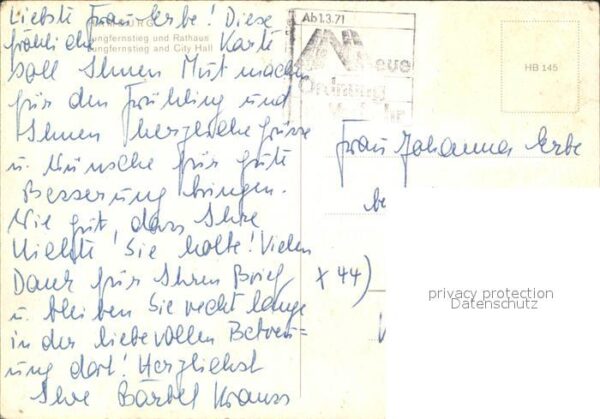 Liebste Frau Erbe! Diese
fröhliche Karte
soll Ihnen Mut machen
für den Frühling und
Ihnen herzliche Grüsse
u. Wünsche für gute
Besserung bringen.
Wie gut, dass Ihre
Nichte Sie holte! Vielen
Dank für Ihren Brief,
u. bleiben Sie recht lange
in der liebevollen Betreu=
ung dort! Herzlichst
Ihre Bärbel Krauss
Jungfernstieg und Rathaus
Jungfernstieg and City Hall
Ab 1.3.71
Neue
Ordnung
HB 145
Frau Johanna Erbe
be
x 44)
privacy protection
Datenschutz